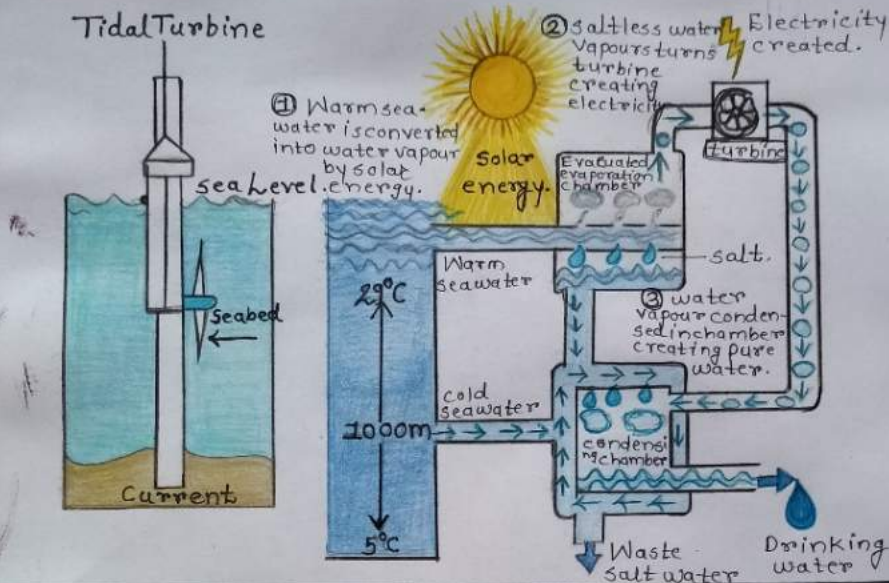 Tidal Turbine
sea Level.
seabed
Current
① Warm sea-
water is converted
into water vapour
by solar
energy.
Solar
energy.
② saltless water
Vapours turns
turbine
creating
electricity
Electricity
created.
turbine
Evaluated
evaporation
chamber
salt.
Warm
seawater
29°C
1000m
5°C
cold
seawater
③ water
vapour conden-
sed in chamber
creating pure
water.
condensi
ng chamber
Waste
salt water
Drinking
water